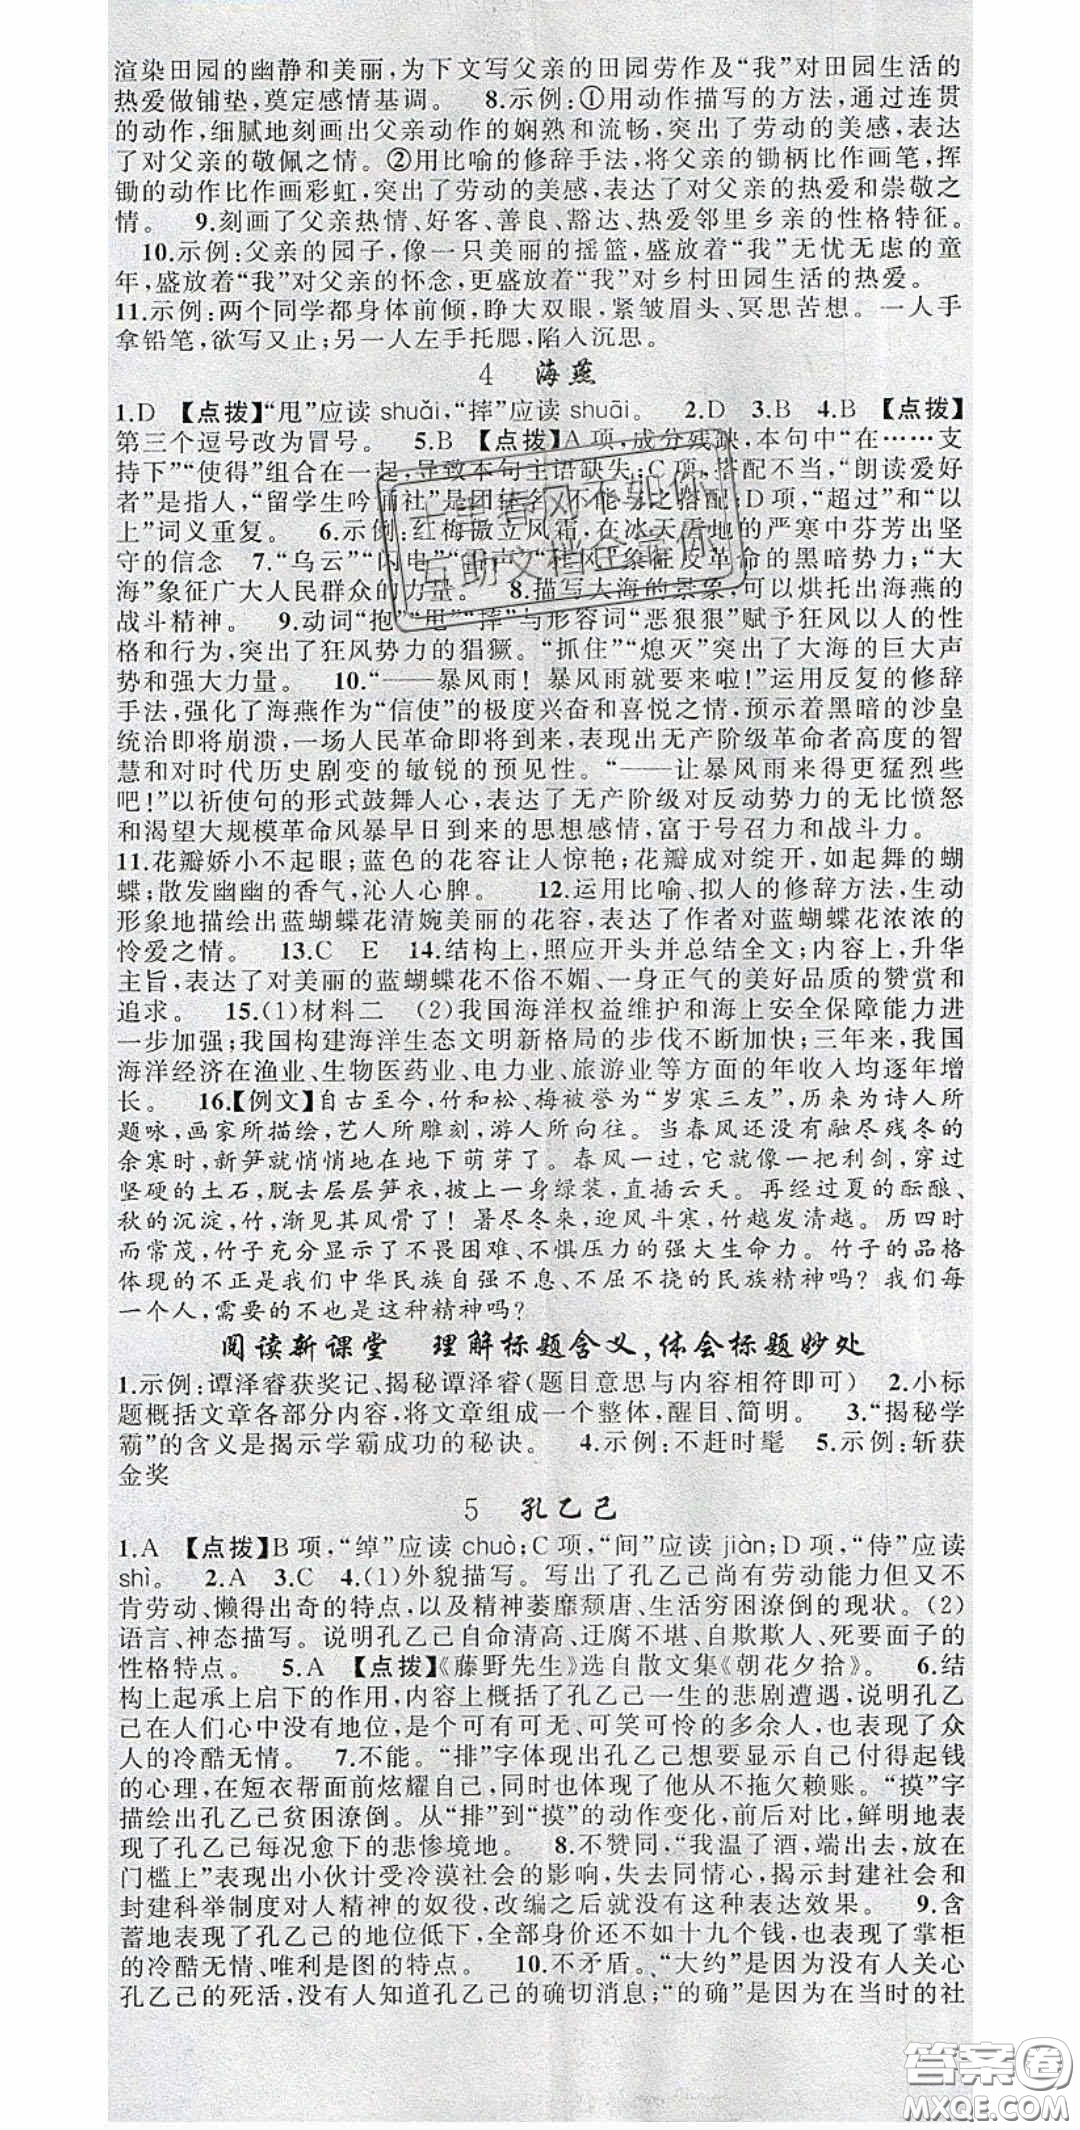 渲染田园的幽静和美丽,为下文写父亲的田园劳作及“我”对田园生活的
热爱做铺垫,奠定感情基调。 8.示例:①用动作描写的方法,通过连贯
的动作,细腻地刻画出父亲动作的娴熟和流畅,突出了劳动的美感,表达
了对父亲的敬佩之情。②用比喻的修辞手法,将父亲的锄柄比作画笔,挥
锄的动作比作画彩虹,突出了劳动的美感,表达了对父亲的热爱和崇敬之
情。 9.刻画了父亲热情、好客、善良、豁达、热爱邻里乡亲的性格特征。
10.示例:父亲的园子,像一只美丽的摇篮,盛放着“我”无忧无虑的童
年,盛放着“我”对父亲的怀念,更盛放着“我”对乡村田园生活的热爱。
11.示例:两个同学都身体前倾,睁大双眼,紧皱眉头、冥思苦想。一人手
拿铅笔,欲写又止;另一人左手托腮,陷入沉思。
4 海燕
1.D 【点拨】“甩”应读shuǎi,“摔”应读shuāi。 2.D 3.B 4.B 【点拨】
第三个逗号改为冒号。 5.B 【点拨】A项,成分残缺,本句中“在……支
持下”“使得”组合在一起,导致本句主语缺失;C项,搭配不当,“朗读爱好
者”是指人,“留学生吟诵社”是团体名,不能与之搭配;D项,“超过”和“以
上”词义重复。 6.示例:红梅傲立风霜,在冰天雪地的严寒中芬芳出坚
守的信念 7.“乌云”“闪电”“雷声”“狂风”象征反革命的黑暗势力;“大
海”象征广大人民群众的力量。 8.描写大海的景象,可以烘托出海燕的
战斗精神。 9.动词“抱”“甩”“摔”与形容词“恶狠狠”赋予狂风以人的性
格和行为,突出了狂风势力的猖獗。“抓住”“熄灭”突出了大海的巨大声
势和强大力量。 10.“——暴风雨!暴风雨就要来啦!”运用反复的修辞
手法,强化了海燕作为“信使”的极度兴奋和喜悦之情,预示着黑暗的沙皇
统治即将崩溃,一场人民革命即将到来,表现出无产阶级革命者高度的智
慧和对时代历史剧变的敏锐的预见性。“——让暴风雨来得更猛烈些
吧!”以祈使句的形式鼓舞人心,表达了无产阶级对反动势力的无比愤怒
和渴望大规模革命风暴早日到来的思想感情,富于号召力和战斗力。
11.花瓣娇小不起眼;蓝色的花容让人惊艳;花瓣成对绽开,如起舞的蝴
蝶;散发幽幽的香气,沁人心脾。 12.运用比喻、拟人的修辞方法,生动
形象地描绘出蓝蝴蝶花清婉美丽的花容,表达了作者对蓝蝴蝶花浓浓的
怜爱之情。 13.C E 14.结构上,照应开头并总结全文;内容上,升华
主旨,表达了对美丽的蓝蝴蝶花不俗不媚、一身正气的美好品质的赞赏和
追求。 15.(1)材料二 (2)我国海洋权益维护和海上安全保障能力进
一步加强;我国构建海洋生态文明新格局的步伐不断加快;三年来,我国
海洋经济在渔业、生物医药业、电力业、旅游业等方面的年收入均逐年增
长。 16.【例文】自古至今,竹和松、梅被誉为“岁寒三友”,历来为诗人所
题咏,画家所描绘,艺人所雕刻,游人所向往。当春风还没有融尽残冬的
余寒时,新笋就悄悄地在地下萌芽了。春风一过,它就像一把利剑,穿过
坚硬的土石,脱去层层笋衣,披上一身绿装,直插云天。再经过夏的酝酿、
秋的沉淀,竹,渐见其风骨了!暑尽冬来,迎风斗寒,竹越发清越。历四时
而常茂,竹子充分显示了不畏困难、不惧压力的强大生命力。竹子的品格
体现的不正是我们中华民族自强不息、不屈不挠的民族精神吗?我们每
一个人,需要的不也是这种精神吗?
阅读新课堂 理解标题含义,体会标题妙处
1.示例:谭泽睿获奖记、揭秘谭泽睿(题目意思与内容相符即可) 2.小标
题概括文章各部分内容,将文章组成一个整体,醒目、简明。 3.“揭秘学
霸”的含义是揭示学霸成功的秘诀。 4.示例:不赶时髦 5.示例:斩获
金奖
5 孔乙己
1.A 【点拨】B项,“绰”应读chuò;C项,“间”应读jiàn;D项,“侍”应读
shì。 2.A 3.C 4.(1)外貌描写。写出了孔乙己尚有劳动能力但又不
肯劳动、懒得出奇的特点,以及精神萎靡颓唐、生活穷困潦倒的现状。(2)
语言、神态描写。说明孔乙己自命清高、迂腐不堪、自欺欺人、死要面子的
性格特点。 5.A 【点拨】《藤野先生》选自散文集《朝花夕拾》。 6.结
构上起承上启下的作用,内容上概括了孔乙己一生的悲剧遭遇,说明孔乙
己在人们心中没有地位,是个可有可无、可笑可怜的多余人,也表现了众
人的冷酷无情。 7.不能。“排”字体现出孔乙己想要显示自己付得起钱
的心理,在短衣帮面前炫耀自己,同时也体现了他从不拖欠赖账。“摸”字
描绘出孔乙己贫困潦倒。从“排”到“摸”的动作变化,前后对比,鲜明地表
现了孔乙己每况愈下的悲惨境地。 8.不赞同,“我温了酒,端出去,放在
门槛上”表现出小伙计受冷漠社会的影响,失去同情心,揭示封建社会和
封建科举制度对人精神的奴役,改编之后就没有这种表达效果。 9.含
蓄地表现了孔乙己的地位低下,全部身价还不如十九个钱,也表现了掌柜
的冷酷无情、唯利是图的特点。 10.不矛盾。“大约”是因为没有人关心
孔乙己的死活,没有人知道孔乙己的确切消息;“的确”是因为在当时的社
十里春风不如你
互助文档全靠你
答案圈
MXQE.COM